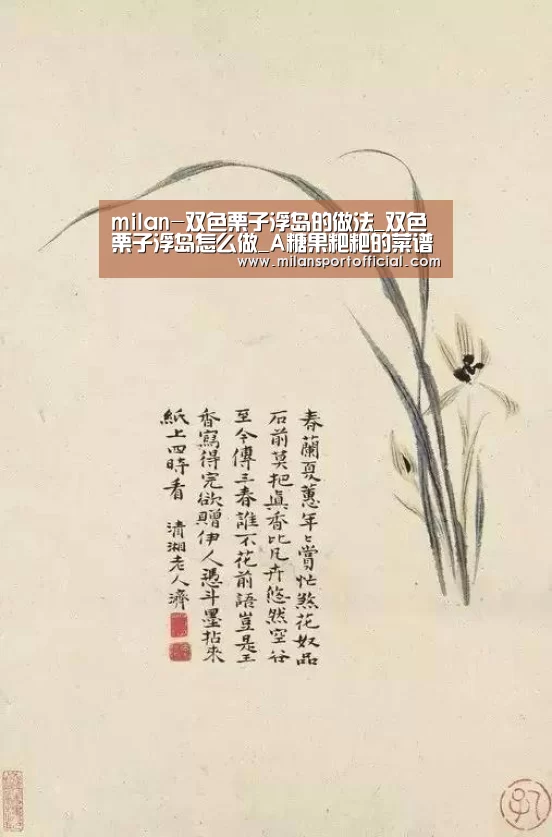 milan-双色栗子浮岛的做法_双色
栗子浮岛怎么做_A糖果粑粑的菜谱
www.milansportofficial.com
春蘭夏蕙年〻賞忙煞花奴品
石前莫把眞香比凡卉悠然空谷
至今傳三春誰不花前語豈是王
香寫得完欲贈伊人憑斗墨拈來
紙上四時看 清湘老人濟